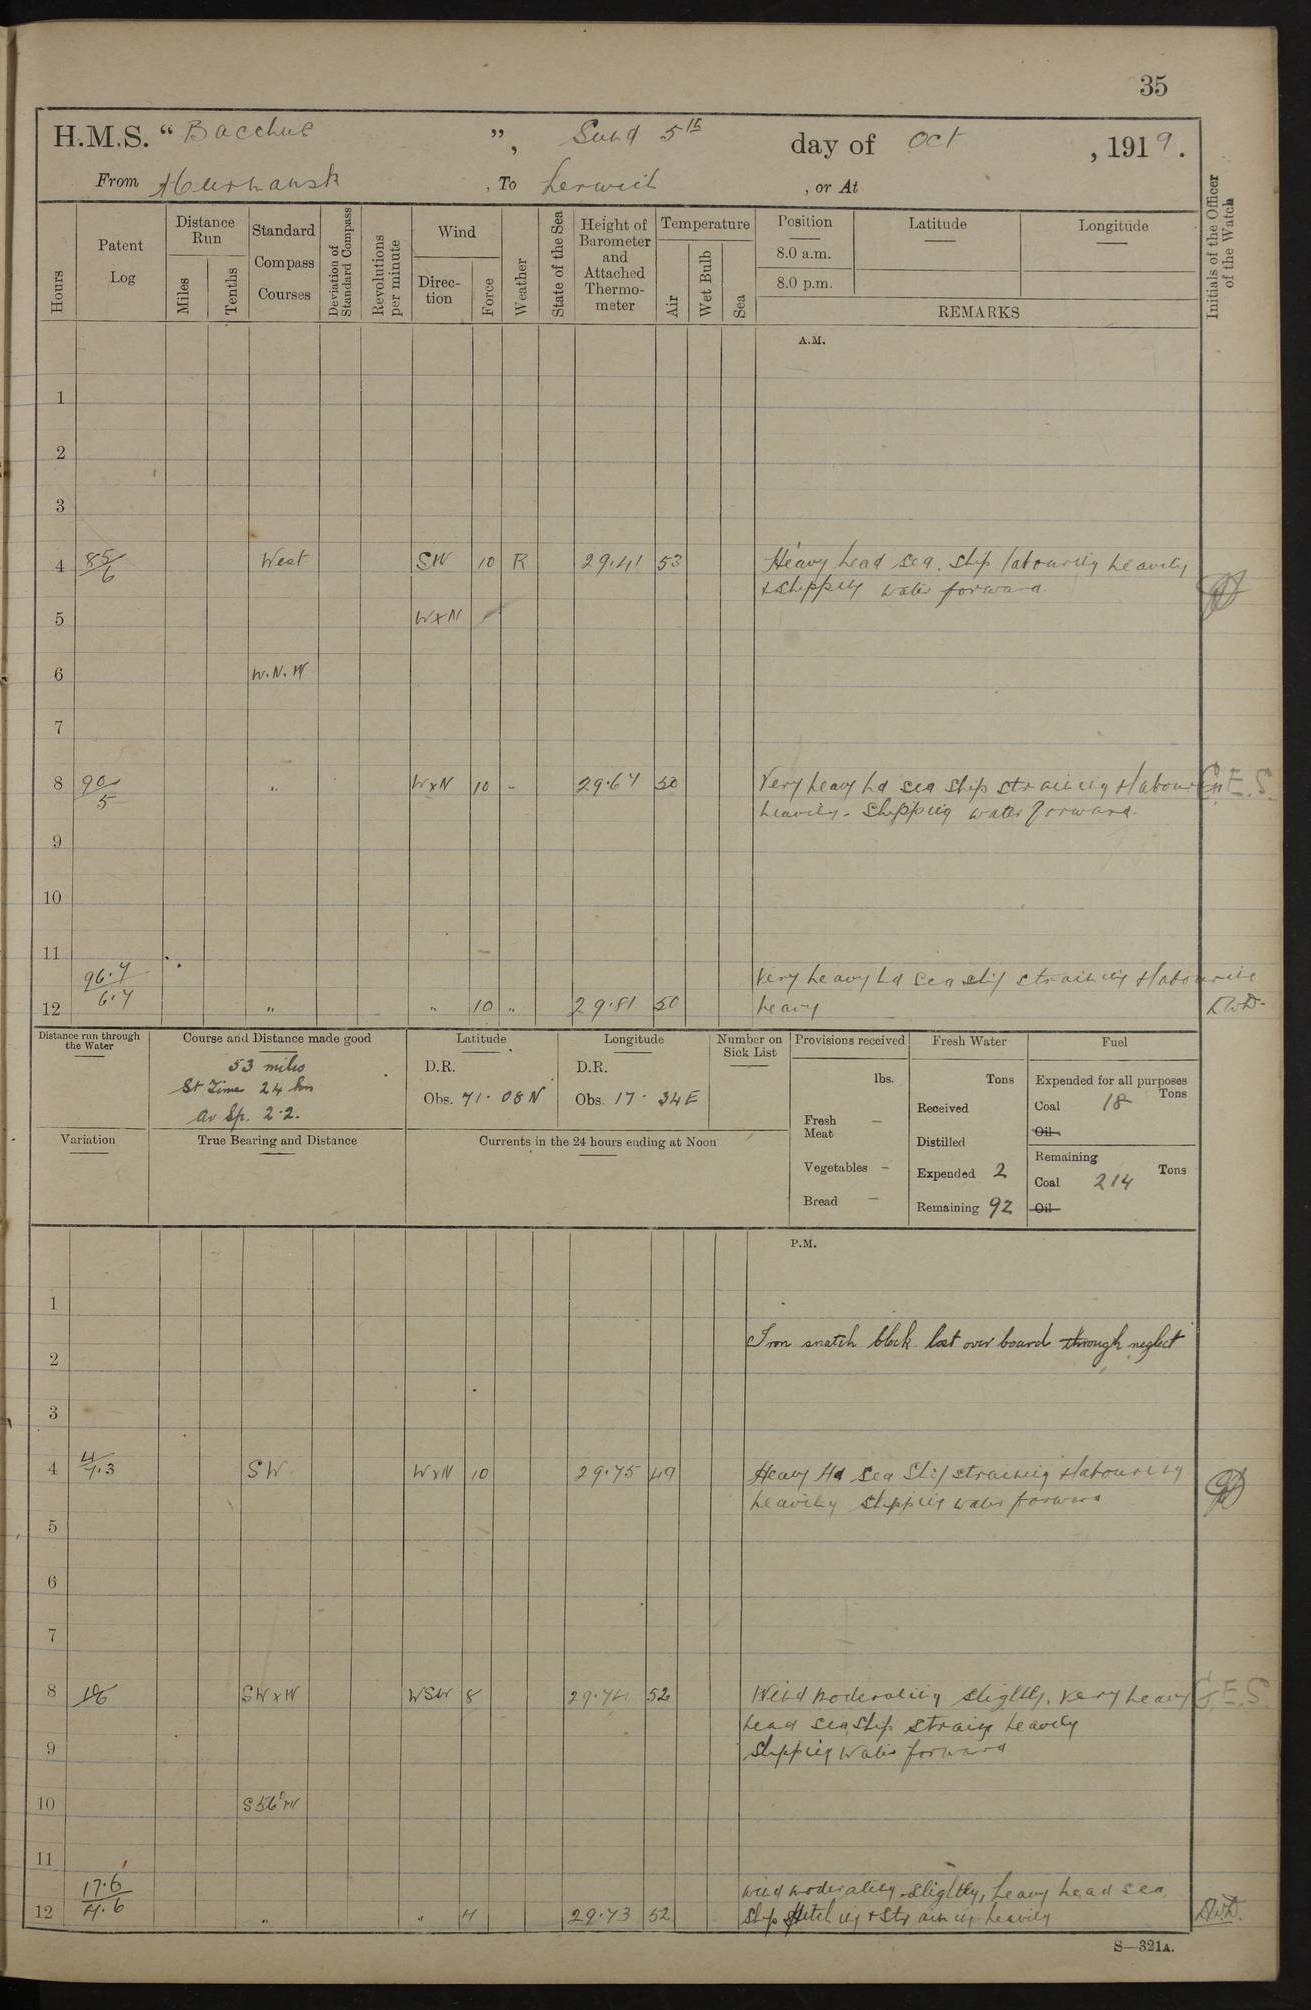 35
H.M.S. “ Bacchus ”, Sund 5th day of Oct , 1919.
From Murmansk , To Lerwick , or At
Initials of the Officer of the Watch
Hours
Patent Log
Distance Run
Miles
Tenths
Standard Compass Courses
Deviation of Standard Compass
Revolutions per minute
Wind
Direction
Force
Weather
State of the Sea
Height of Barometer and Attached Thermometer
Temperature
Air
Wet Bulb
Sea
Position
Latitude
Longitude
8.0 a.m.
8.0 p.m.
REMARKS
A.M.
1
2
3
4 85/6 West SW 10 R 29.41 53 Heavy head sea. Ship labouring heavily
& shipping water forward.
5 WxN
6 W.N.W
7
8 90/5 " WxN 10 " 29.67 50 Very heavy hd sea ship straining & labouring G.E.S.
heavily. Shipping water forward.
9
10
11
96.7 Very heavy hd sea ship straining & labouring
12 6.7 " " 10 " 29.81 50 heavy
Distance run through the Water
Course and Distance made good
53 miles
St Time 24 hrs
Av Sp. 2.2.
Latitude
D.R.
Obs. 71. 08 N
Longitude
D.R.
Obs. 17. 34 E
Number on Sick List
Provisions received
lbs.
Fresh Meat –
Vegetables –
Bread –
Fresh Water
Tons
Received
Distilled
Expended 2
Remaining 92
Fuel
Expended for all purposes
Tons
Coal 18
Oil
Remaining
Tons
Coal 214
Oil
Variation
True Bearing and Distance
Currents in the 24 hours ending at Noon
P.M.
1
Iron snatch block lost over board through neglect
2
3
4 4/7.3 SW WxN 10 29.75 49 Heavy Hd sea Ship straining & labouring
heavily shipping water forward
5
6
7
8 10/6 SWxW WSW 8 29.74 52 Wind moderating slightly. very heavy G.E.S.
head sea, ship strain heavily
9 shipping water forward
10 S56°W
11
17.6 wind moderating slightly, heavy head sea.
12 7.6 " " 7 29.73 52 Ship pitching & straining heavily
S—321A.